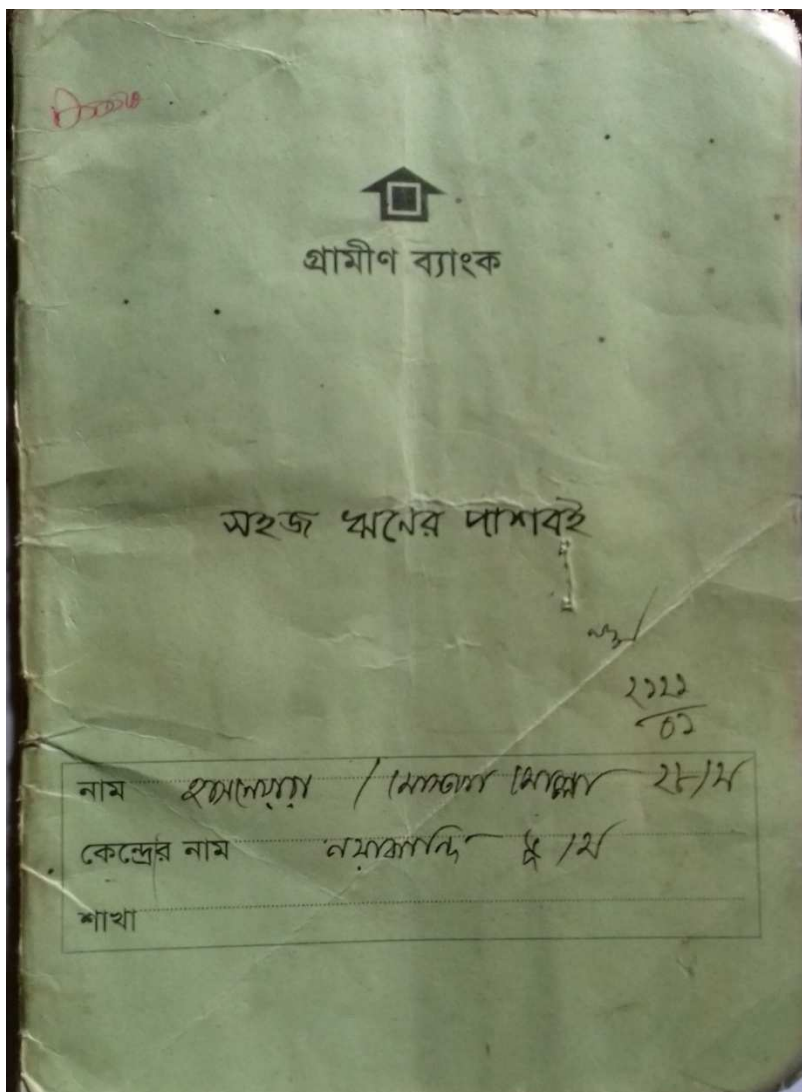 গ্রামীণ ব্যাংক
সহজ ঋনের পাশবই
২১২১
০১
নাম / মোল্লা ২৮/ম
কেন্দ্রের নাম নয়াকান্দি ৬/ম
শাখা